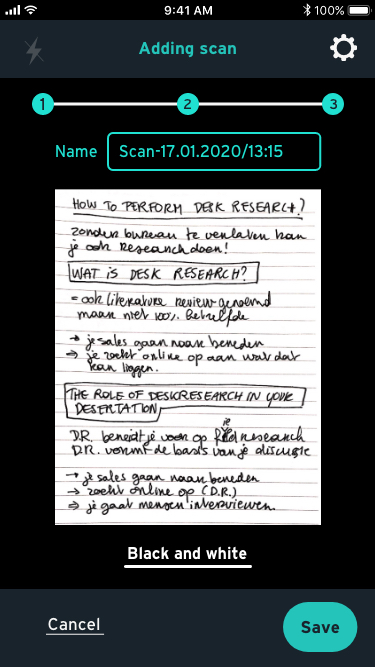 9:41 AM
100%
Adding scan
1 2 3
Name Scan-17.01.2020/13:15
HOW TO PERFORM DESK RESEARCH?
zonder bureau te verlaten kan
je ook research doen!
WAT IS DESK RESEARCH?
= ook literature review genoemd
maar niet 100% hetzelfde
→ je sales gaan naar beneden
⇒ je zoekt online op aan wat dat
kan liggen.
THE ROLE OF DESKRESEARCH IN YOUR
DESERTATION
je
D.R. bereidt je voor op research
D.R. vormt de basis van je discussie
→ je sales gaan naar beneden
→ zoekt online op (D.R.)
⇒ je gaat mensen interviewen.
Black and white
Cancel
Save